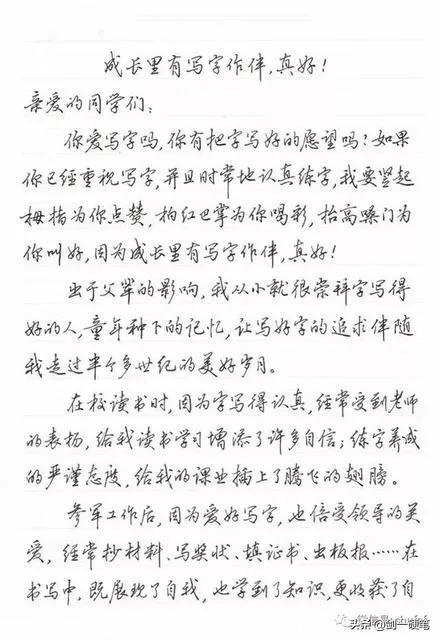 成长里有写字作伴,真好!
亲爱的同学们:
你爱写字吗,你有把字写好的愿望吗?如果
你已经重视写字,并且时常地认真练字,我要竖起
拇指为你点赞,拍红巴掌为你喝彩,抬高嗓门为
你叫好,因为成长里有写字作伴,真好!
出于父辈的影响,我从小就很崇拜字写得
好的人,童年种下的记忆,让写好字的追求伴随
我走过半个多世纪的美好岁月。
在校读书时,因为字写得认真,经常受到老师
的表扬,给我读书学习增添了许多自信;练字养成
的严谨态度,给我的课业插上了腾飞的翅膀。
参军工作后,因为爱好写字,也倍受领导的关
爱,经常抄材料、写奖状、填证书、出板报……在
书写中,既展现了自我,也学到了知识,更收获了自
头条 @剑一硬笔